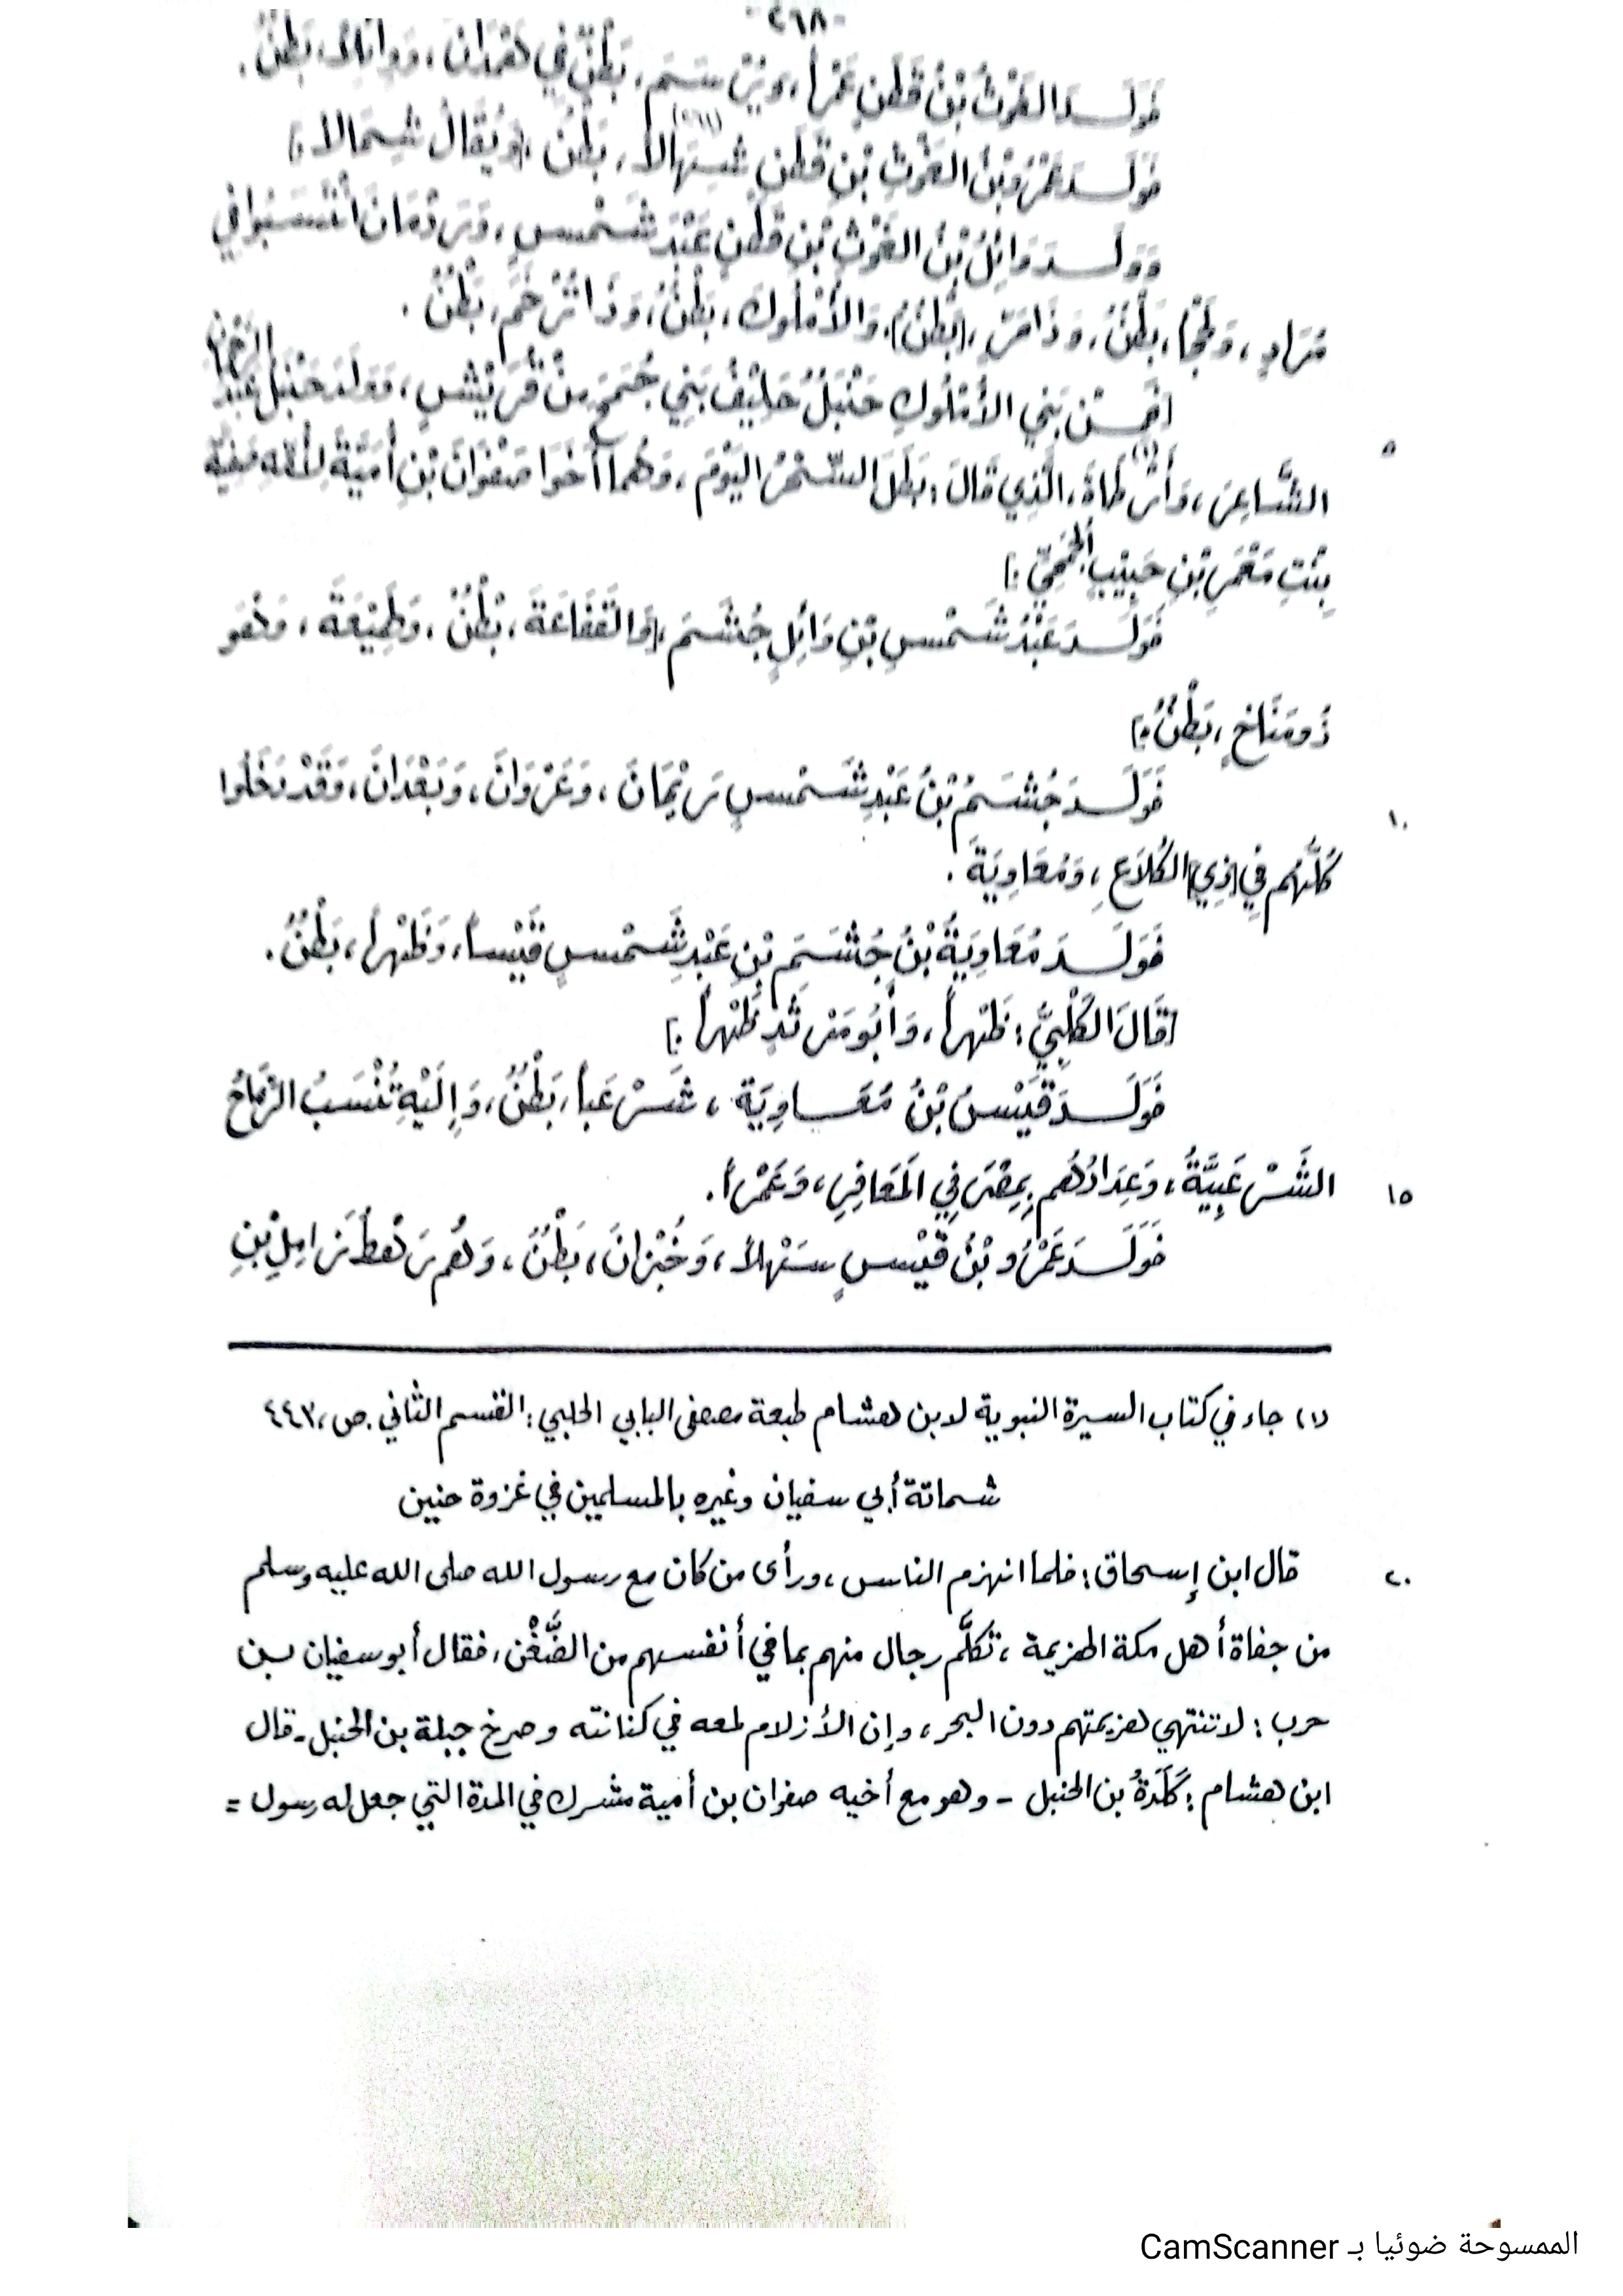 -٢٦٨-
فَوَلَـدَ الغَوْثُ بْنُ قَطَنٍ عَمْراً، وَيَرِيْـسَـمَ، بَطْنٌ في هَمْدَانَ، وَوَائِلاً، بَطْنٌ.
فَوَلَـدَ عَمْرُو بْنُ الغَوْثِ بْنِ قَطَنٍ شِـهَالاً، بَطْنٌ [وَيُقَالُ شِـمَالاً.]
وَوَلَـدَ وَائِلُ بْنُ الغَوْثِ بْنِ قَطَنٍ عَبْدَ شَـمْسٍ، وَرَدْمَانَ انْتَسَـبُوا في
مُرَادٍ، وَ بَطْنٌ، وَذَا مَرٍّ، [بَطْنٌ]، وَالأُمْلُوكَ، بَطْنٌ، وَذَا تُرْخُمٍ، بَطْنٌ.
[فَمِـنْ بَنِي الأُمْلُوكِ حَنْبَلُ حَلِيْفُ بَنِي جُمَحَ مِنْ قُرَيْشٍ، فَوَلَدَ حَنْبَلُ عَبْدَ الرَّحْمَنِ
الشَّاعِرَ، وَأَرْطَاةَ، الَّذِي قَالَ: بَطَلَ السِّـحْرُ اليَوْمَ، وَهُمَا أَخَوَا صَفْوَانَ بْنِ أُمَيَّةَ لِأُمِّهِ صَفِيَّة
بِنْتِ مَعْمَرِ بْنِ حَبِيْبٍ الجُمَحِيِّ.]
فَوَلَـدَ عَبْدُ شَـمْسِ بْنِ وَائِلٍ جُشَـمَ، [وَالقَفَاعَةَ، بَطْنٌ، وَ، وَهُوَ
ذُو مَنَاخٍ، بَطْنٌ.]
فَوَلَـدَ جُشَـمُ بْنُ عَبْدِ شَـمْسٍ رَيْمَانَ، وَعَرْوَانَ، وَبَعْدَانَ، وَقَدْ دَخَلُوا
كُلُّهُم فِي [ذِي] الكُلَاعِ، وَمُعَاوِيَةَ.
فَوَلَـدَ مُعَاوِيَةُ بْنُ جُشَـمَ بْنِ عَبْدِ شَـمْسٍ قَيْساً، وَظَهْراً، بَطْنٌ.
[قَالَ الكَلْبِيُّ: ظَهْراً، وَأَبُو مَرْثَدٍ ظَهْراً.]
فَوَلَـدَ قَيْسُ بْنُ مُعَـاوِيَةَ، شَـرْعَباً، بَطْنٌ، وَإِلَيْهِ تُنْسَبُ الرِّمَاحُ
الشَّـرْعَبِيَّةُ، وَعِدَادُهُم بِمِصْرَ فِي المَعَافِرِ، وَعَمْراً.
فَوَلَـدَ عَمْرُو بْنُ قَيْسٍ سَـهْلاً، وَخُبْزَانَ، بَطْنٌ، وَهُم رَهْطُ زَامِلِ بْنِ
(١) جاء في كتاب السيرة النبوية لابن هشام طبعة مصطفى البابي الحلبي: القسم الثاني. ص، ٤٤٣
شـماتة أبي سفيان وغيره بالمسلمين في غزوة حنين
قال ابن إسحاق: فلما انهزم الناس، ورأى من كان مع رسول الله صلى الله عليه وسلم
من جفاة أهل مكة الهزيمة، تكلَّم رجال منهم بما في أنفسهم من الضَّغْن، فقال أبو سفيان بن
حرب: لا تنتهي هزيمتهم دون البحر، وإن الأزلام لمعه في كنانته وصرخ جبلة بن الحنبل - قال
ابن هشام: كَلَدَةُ بن الحنبل - وهو مع أخيه صفوان بن أمية مشرك في المدة التي جعل له رسول =
٥
١٠
١٥
٢٠
الممسوحة ضوئيا بـ CamScanner